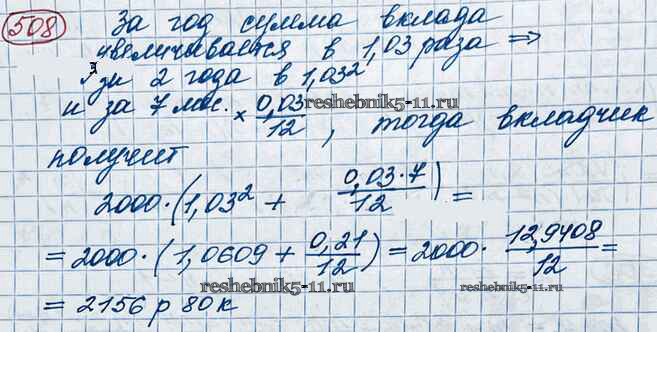 508 За год сумма вклада
увеличивается в 1,03 раза ⇒
за 2 года в 1,03²
и за 7 мес. × 0,03/12 , тогда вкладчик
resheb​nik5-11.ru
получит
2000·(1,03² + 0,03·7/12) =
= 2000·(1,0609 + 0,21/12) = 2000· 12,9408/12 =
reshebnik5-11.ru
reshebnik5-11.ru
= 2156 р 80 к